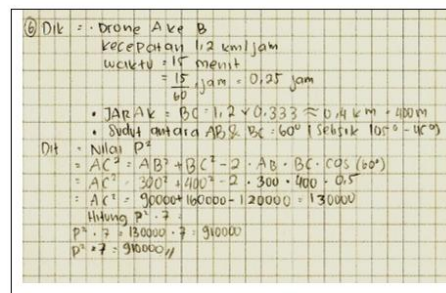 ⑥ Dik : • Drone A ke B
kecepatan 1,2 km/jam
waktu = 15 menit
= 15/60 jam = 0,25 jam
• JARAK = BC = 1,2 × 0.333 ≈ 0,4 km = 400m
• Sudut antara AB & BC = 60° ( Selisik 105° - 45°)
Dit : • Nilai P²
= AC² = AB² + BC² - 2 · AB · BC · cos (60°)
= AC² = 300² + 400² - 2 · 300 · 400 · 0.5
= AC² = 90000 + 160000 - 120000 = 130000
Hitung P² · 7 =
P² · 7 = 130000 · 7 = 910000
P² × 7 = 910000 //